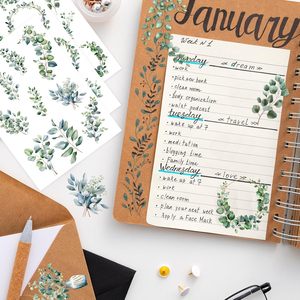 January
Week №1
Monday
dream
• work
• pick new book
• clean room
• body organization
• walst podcast
Tuesday
travel
• wake up at 7
• work
• meditation
• blogging time
• Family time
Wednesday
love
• wake up at 7
• work
• clean room
• plan your next week
• Apply a Face Mask